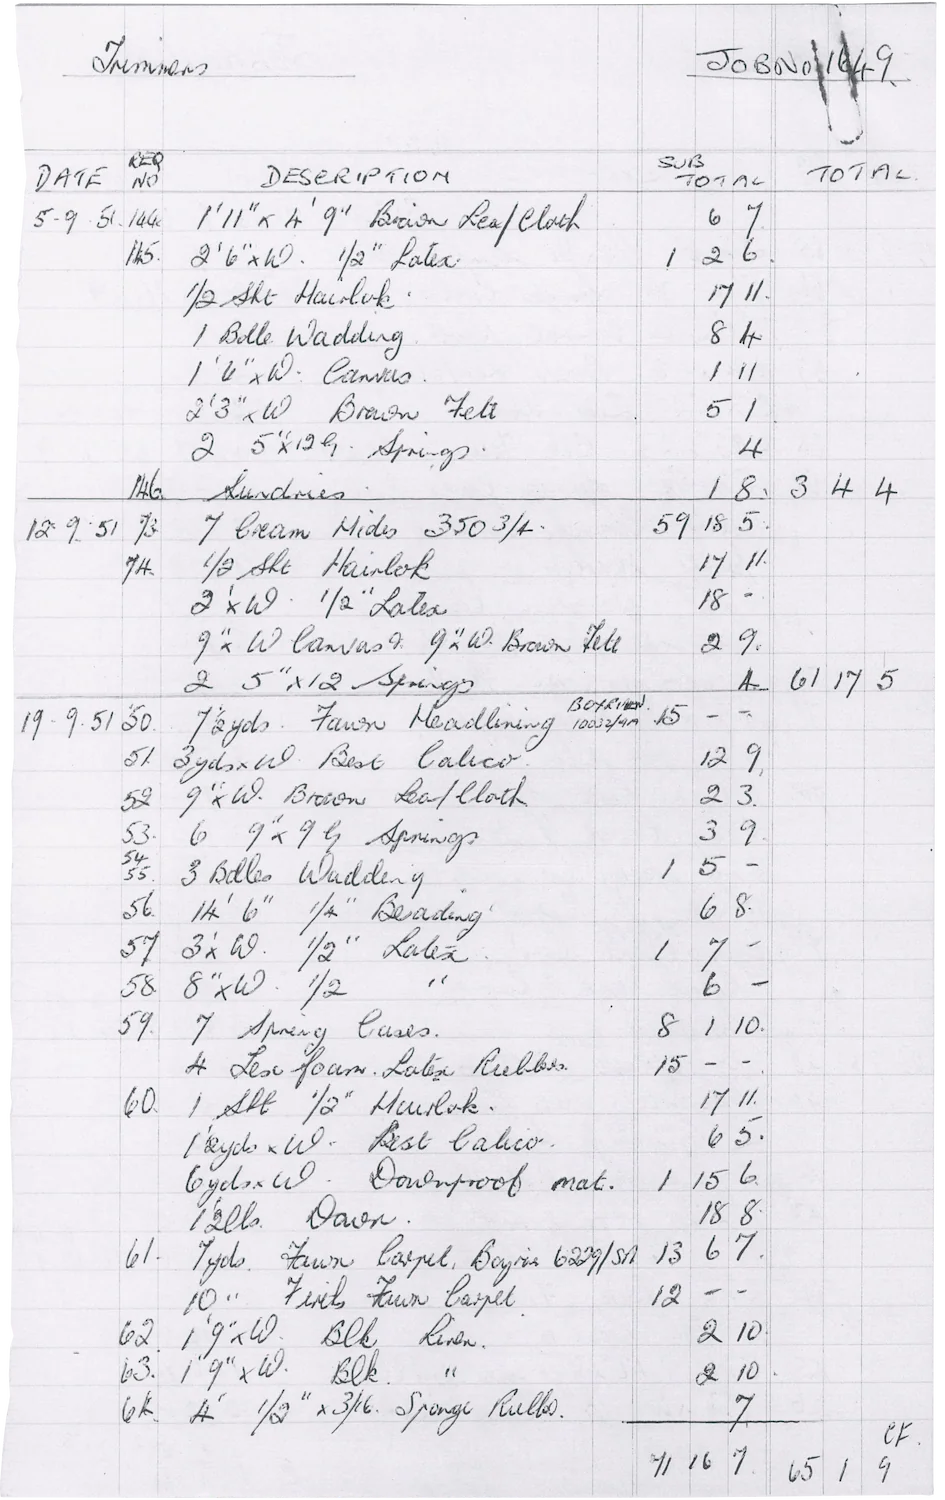 Trimmers JOB No 1649
DATE REQ NO DESCRIPTION SUB TOTAL TOTAL.
5-9-51. 144. 1'11" x 4'9" Brown Lea/Cloth 6 7
145. 2'6" x W. 1/2" Latex. 1 2 6.
1/2 Sht Hairlok. 17 11.
1 Bdle Wadding 8 4
1'6" x W. Canvas. 1 11
2'3" x W Brown Felt 5 1
2 5" x 12 G. Springs. 4
146. Sundries. 1 8. 3 4 4
12-9-51 73 7 Cream Hides 350 3/4. 59 18 5.
74. 1/2 Sht Hairlok 17 11.
2' x W. 1/2" Latex 18 -
9" x W Canvas & 9" x W. Brown Felt 2 9.
2 5" x 12 Springs 4 61 17 5
19-9-51 50. 7½yds. Fawn Headlining 10032/9A 15 - -
51. 3yds x W. Best Calico. 12 9.
52 9" x W. Brown Lea/Cloth 2 3.
53. 6 9" x 9 G Springs 3 9.
54 55. 3 Bdles Wadding 1 5 -
56. 14'6" 1/4" Beading 6 8.
57 3' x W. 1/2" Latex. 1 7 -
58 8" x W. 1/2 " 6 -
59. 7 Spring Cases. 8 1 10.
4 foam. Latex Rubber. 15 - -
60. 1 Sht 1/2" Hairlok. 17 11.
1½yds x W. Best Calico. 6 5.
6yds x W. Downproof mat. 1 15 6.
1½lbs. Down. 18 8.
61. 7yds. Fawn Carpet. 13 6 7.
10 " Firth Fawn Carpet 12 - -
62. 1'9" x W. Blk Linen. 2 10.
63. 1'9" x W. Blk. " 2 10.
64. 4' 1/2" x 3/16. Sponge Rubber. 7
CF.
71 16 7. 65 1 9